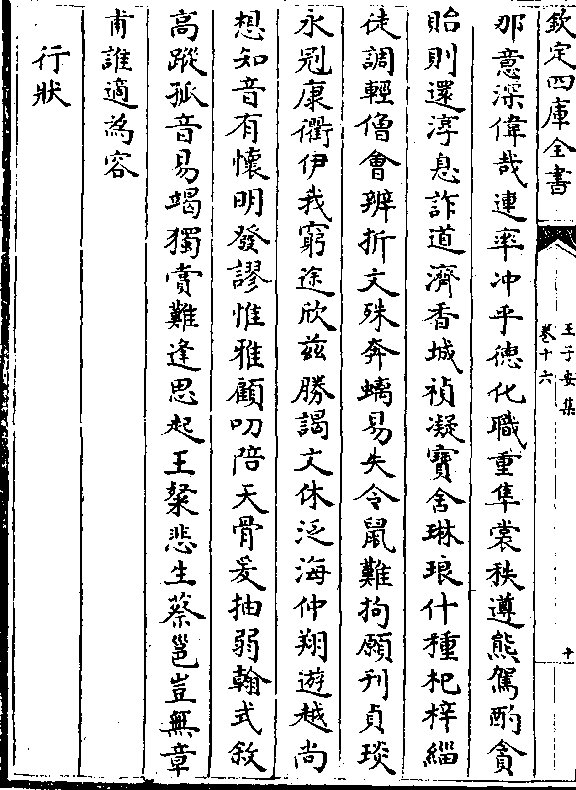 欽定四庫全書
王子安集
卷十六
十
那意深偉哉連率冲乎德化職重隼裳秩遵熊駕酌貪
貽則還淳息詐道濟香城禎凝寶舍琳琅什種杞梓緇
徒調輕僧會辨折文殊奔螭易失令鼠難拘願刋貞琰
永冠康衢伊我窮途欣兹勝謁文休泛海仲翔遊越尚
想知音有懷明發謬惟雅顧叨陪天骨爰抽弱翰式敘
高蹤孤音易竭獨賞難逢思起王粲悲生蔡邕豈無章
甫誰適為容
行狀